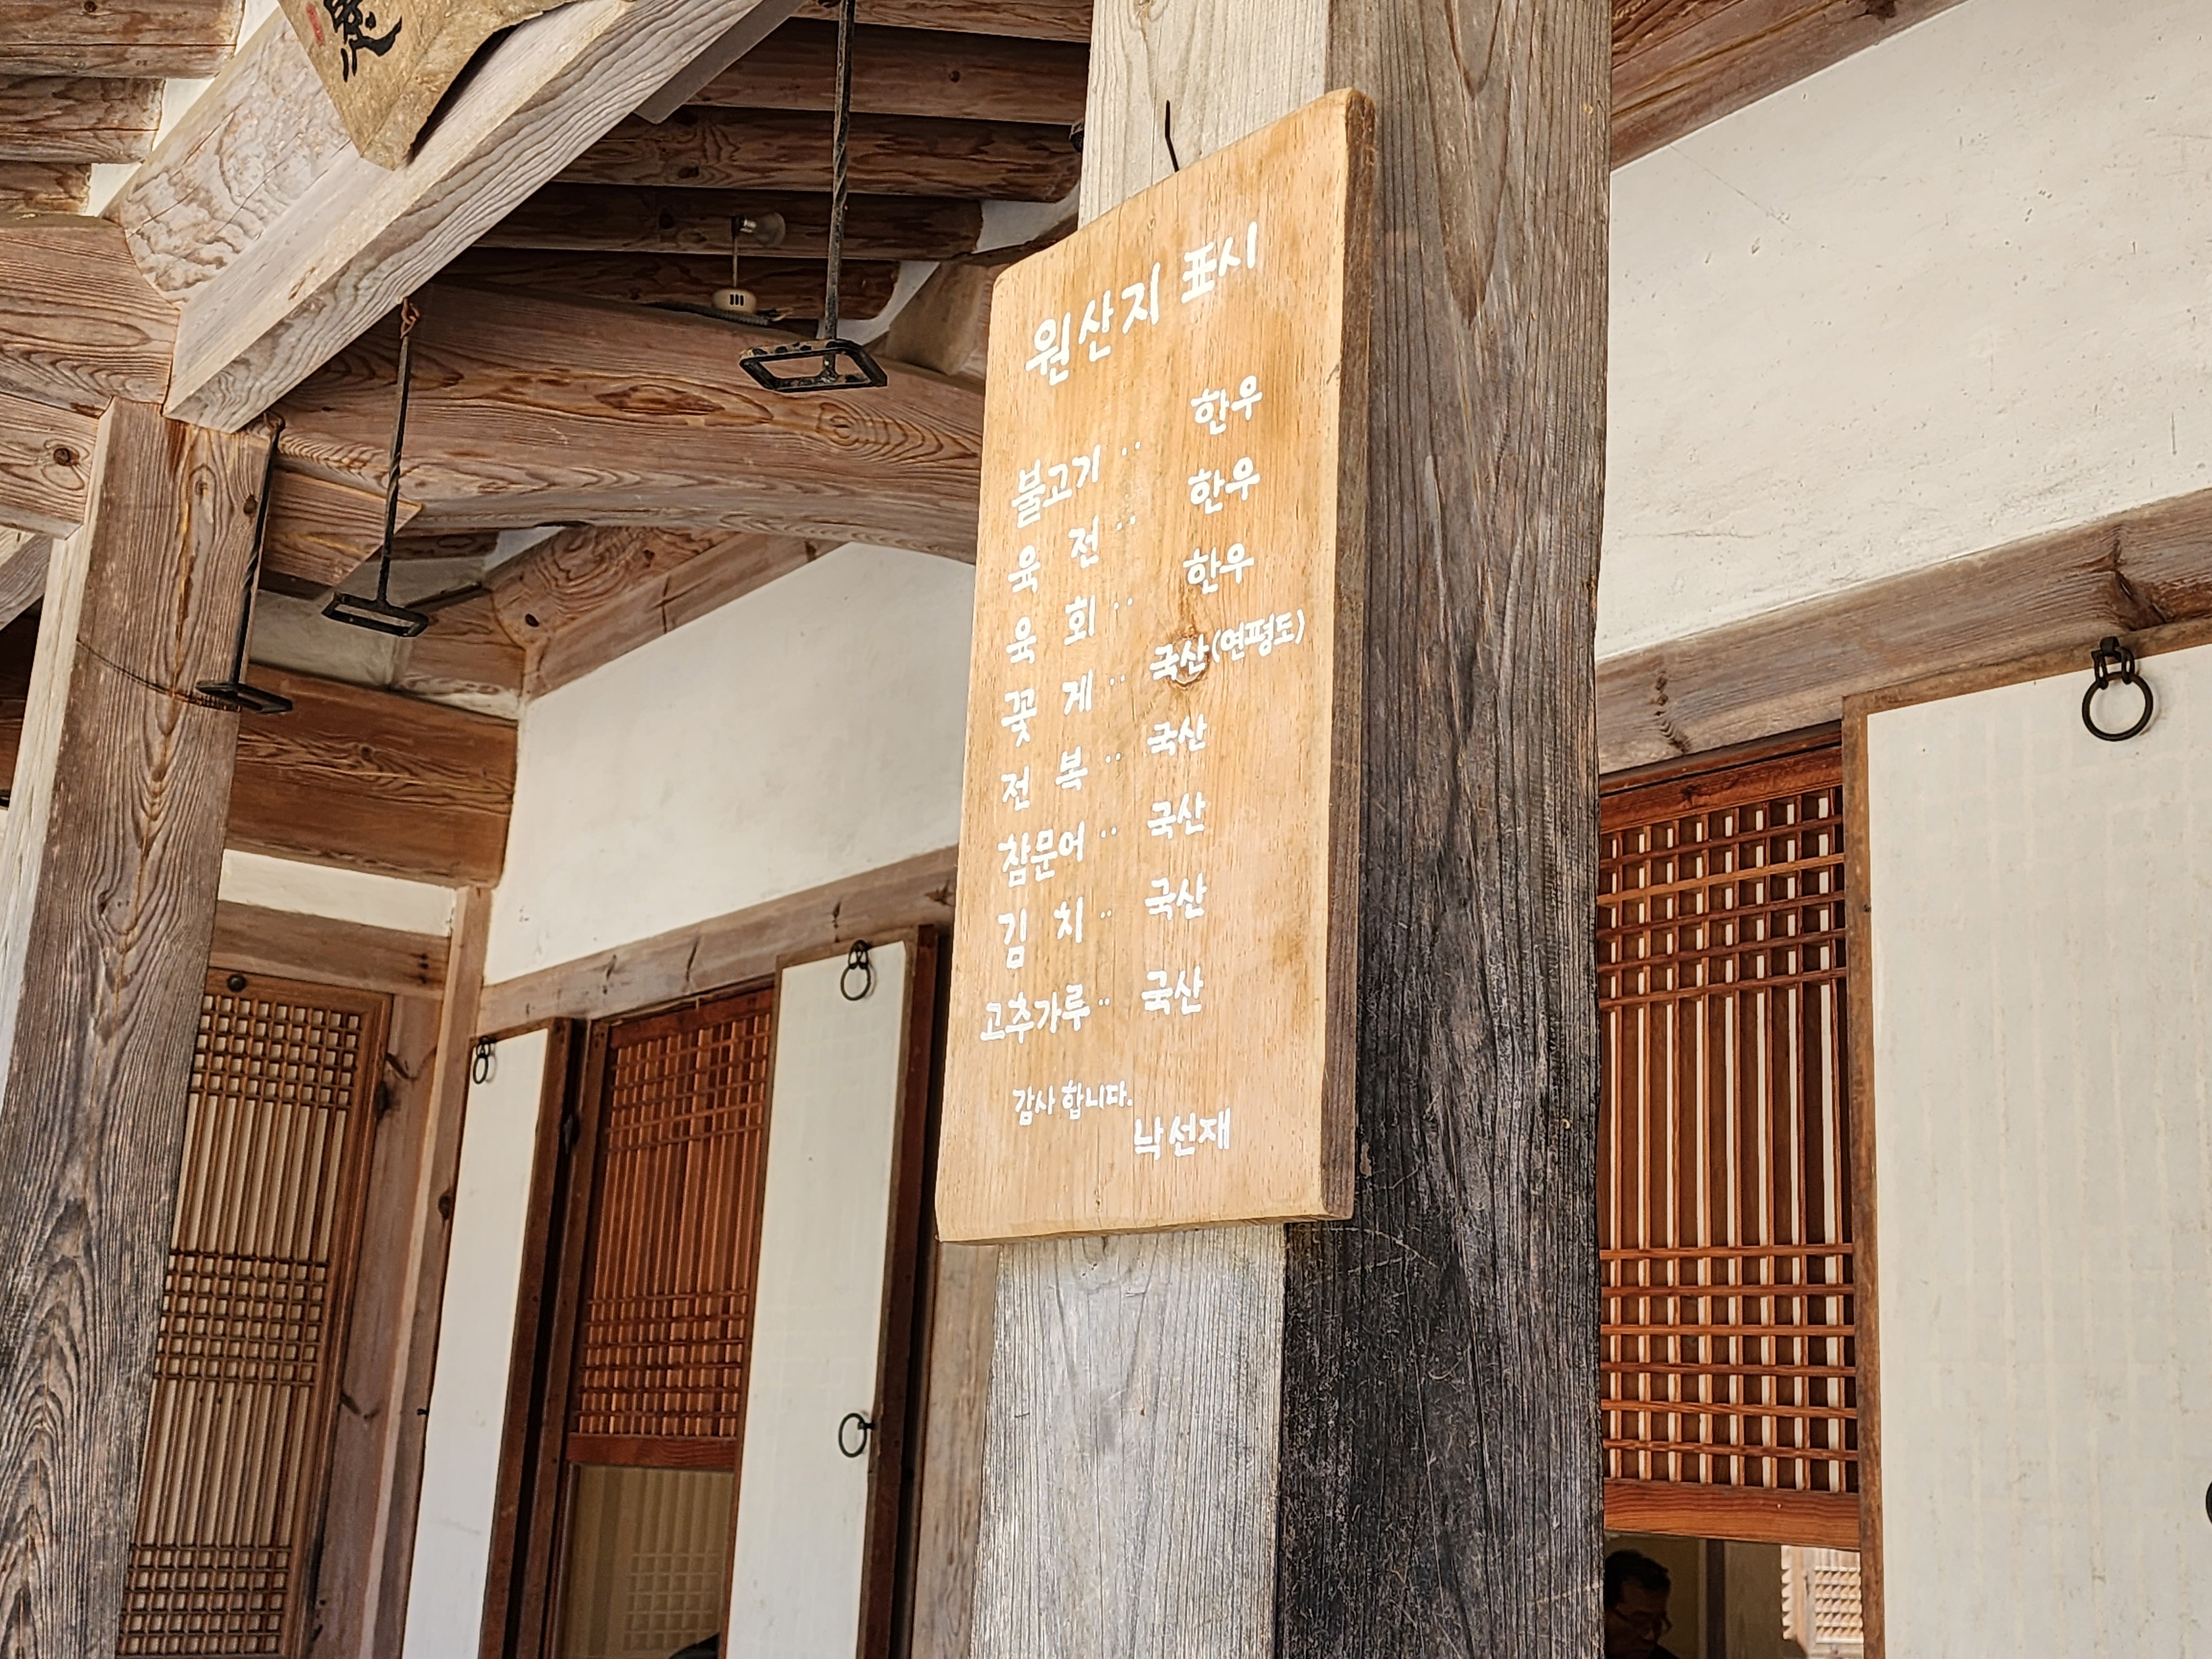 원산지 표시
불고기 ‥ 한우
육 전 ‥ 한우
육 회 ‥ 한우
꽃 게 ‥ 국산(연평도)
전 복 ‥ 국산
참문어 ‥ 국산
김 치 ‥ 국산
고추가루 ‥ 국산
감사합니다.
낙선재